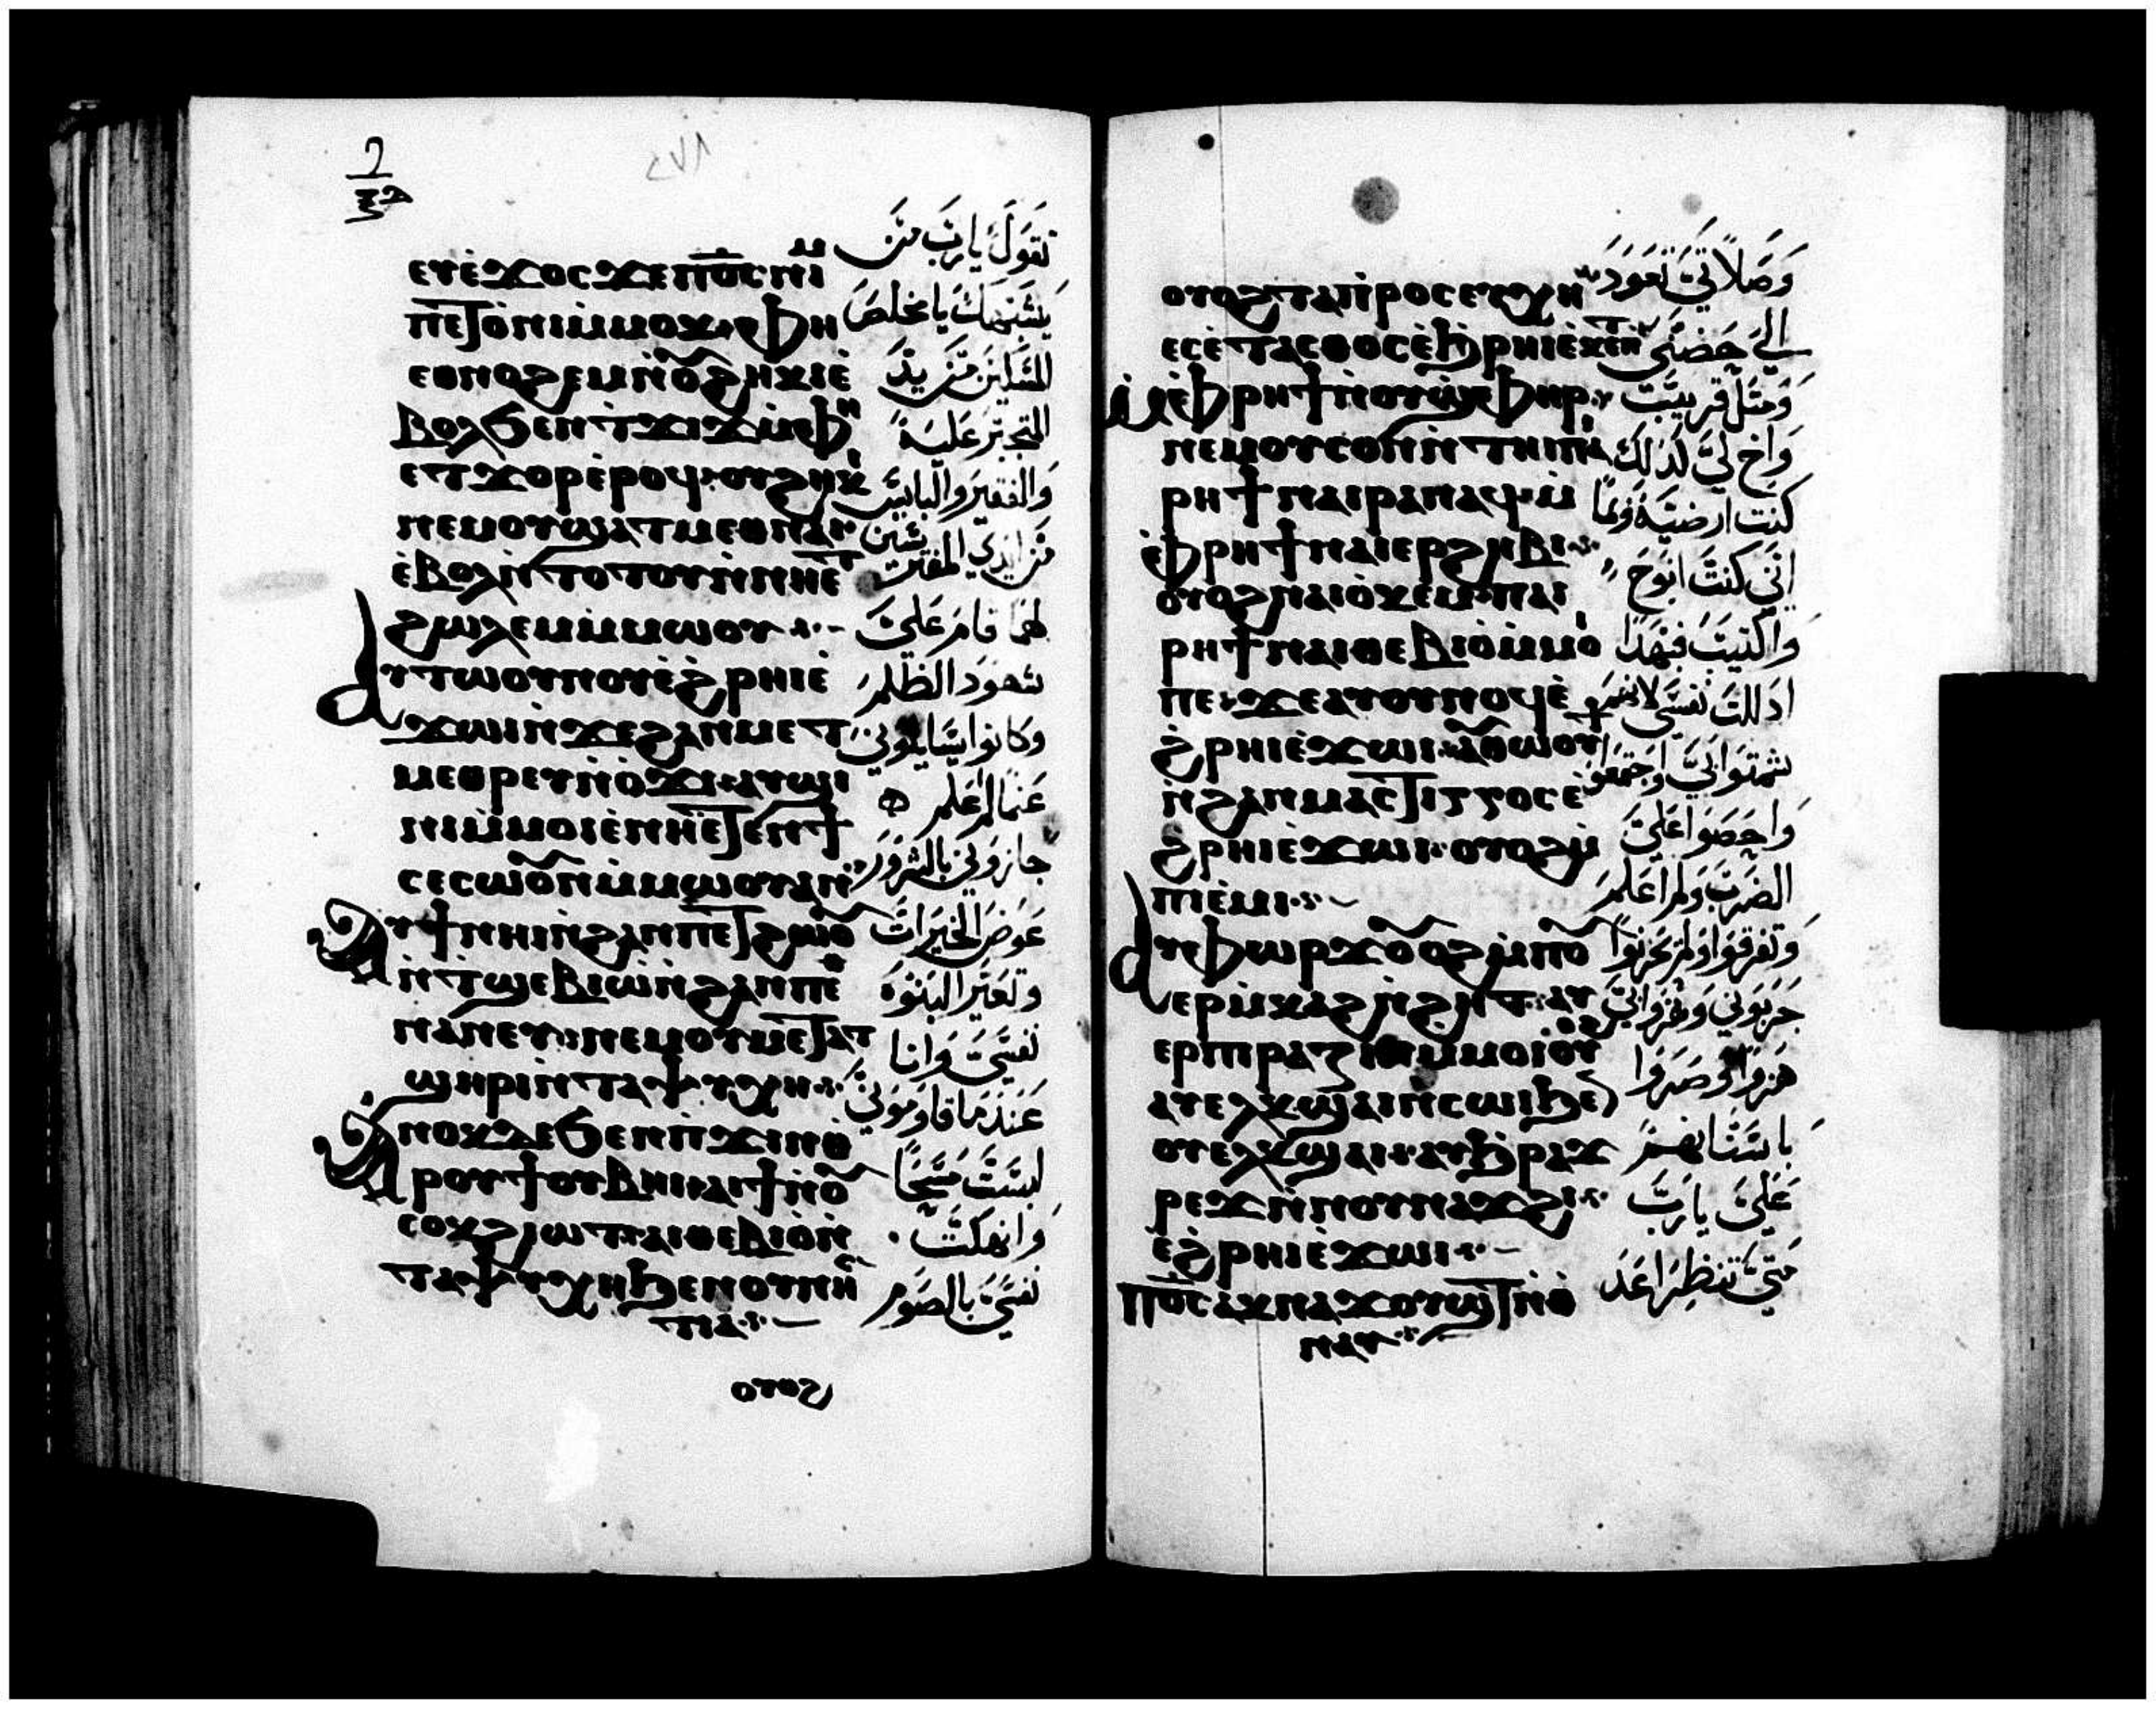 ⲉⲩⲉ̀ϫⲟⲥ ϫⲉ ⲡⲟ̅ⲥ̅ ⲛⲓⲙ
ⲡⲉⲧⲟ̀ⲛⲓ ⲙ̀ⲙⲟⲕ
ⲉⲑⲛⲟϩⲉⲙ ⲛ̀ⲟⲩϩⲏⲕⲓ ⲉ̀
ⲃⲟⲗ ϧⲉⲛ ⲧϫⲓϫ ⲙ̀ⲫⲏ
ⲉⲧϫⲟⲣ ⲉ̀ⲣⲟϥ ⲟⲩϩⲏⲕⲓ
ⲛⲉⲙ ⲟⲩϣⲁⲧⲙⲉⲑⲛⲁⲓ
ⲉ̀ⲃⲟⲗ ⲛ̀ⲧⲟⲧⲟⲩ ⲛ̀ⲛⲏⲉⲧ
ϩⲱⲗⲉⲙ ⲙ̀ⲙⲱⲟⲩ
ⲁⲩⲧⲱⲟⲩⲛⲟⲩ ⲉ̀ϩ̀ⲣⲏⲓ ⲉ̀
ϫⲱⲓ ⲛ̀ϫⲉ ϩⲁⲛⲙⲉⲧ
ⲙⲉⲑⲣⲉⲩ ⲛ̀ⲟ̀ϫⲓ ⲁⲩϣⲓ
ⲛⲓ ⲙ̀ⲙⲟⲓ ⲉ̀ⲛⲏⲉⲧⲉⲛϯ
ⲥⲉⲥⲱⲟⲩⲛ ⲙ̀ⲙⲱⲟⲩ ⲁⲛ
ⲁⲩϯ ⲛⲏⲓ ⲛ̀ϩⲁⲛⲡⲉⲧϩⲱⲟⲩ
ⲛ̀ⲧϣⲉⲃⲓⲱ̀ ⲛ̀ϩⲁⲛⲡⲉ
ⲛⲁⲛⲉⲩ ⲛⲉⲙ ⲟⲩⲙⲉⲧⲁⲧ
ϣⲏⲣⲓ ⲛ̀ⲧⲁⲯⲩⲭⲏ
ⲁⲛⲟⲕ ⲇⲉ ϧⲉⲛ ⲡϫⲓⲛⲑ
ⲣⲟⲩϯⲟⲩⲃⲏⲓ ⲁⲓϯ ⲛ̀ⲟⲩ
ⲥⲟⲕ ϩⲓⲱⲧ ⲁⲓⲑⲉⲃⲓⲟ̀ ⲛ̀
ⲧⲁⲯⲩⲭⲏ ϧⲉⲛ ⲟⲩⲛⲏⲥ
ⲧⲓⲁ
ⲟⲩⲟϩ
تقول يارب من
يشبهك يا مخلص
المسكين من يد
المتجبر عليه
والفقير والبايس
من ايدي المفتشين
لهما قام علي
شهود الظلم
وكانوا يسايلوني
عما لم اعلم
جازوني بالشرور
عوض الخيرات
وتعقير البنوه
نفسي وانا
عندما قاوموني
لبست مسحا
وانهكت
نفسي بالصوم
ⲟⲩⲟϩ ⲧⲁⲡⲣⲟⲥⲉⲩⲭⲏ
ⲉⲥⲉ̀ⲧⲁⲥⲑⲟⲥ ⲉ̀ϧⲣⲏⲓ ⲉ̀ⲕⲉⲛ
ⲙ̀ⲫⲣⲏϯ ⲛ̀ⲟⲩϣⲫⲏⲣ
ⲛⲉⲙ ⲟⲩⲥⲟⲛ ⲛ̀ⲧⲏⲓ ⲡⲁⲓ
ⲣⲏϯ ⲛⲁⲓⲣⲁⲛⲁϥ ⲙ̀
ⲫ̀ⲣⲏϯ ⲛⲁⲓⲉⲣϩⲏⲃⲓ
ⲟⲩⲟϩ ⲛⲁⲓⲟ̀ⲕⲉⲙ ⲡⲁⲓ
ⲣⲏϯ ⲛⲁⲓⲑⲉⲃⲓⲟ̀ ⲙ̀ⲙⲟ
ⲡⲉ ϫⲉ ⲁⲩⲟⲩⲛⲟϥ ⲉ̀
ϩ̀ⲣⲏⲓ ⲉ̀ϫⲱⲓ ⲁⲩⲑⲱⲟⲩϯ
ⲛ̀ϩⲁⲛⲙⲁⲥⲧⲓⲅⲅⲟⲥ ⲉ̀
ϩ̀ⲣⲏⲓ ⲉ̀ϫⲱⲓ ⲟⲩⲟϩ ⲙ̀
ⲡⲓⲉ̀ⲙⲓ
ⲁⲩⲫⲱⲣϫ ⲟⲩⲟϩ ⲙ̀ⲡⲟⲩ
ⲉⲣⲙ̀ⲕⲁϩ ⲛ̀ϩⲏⲧ ⲁⲩ
ⲉⲣⲡⲓⲣⲁⲍⲓⲛ ⲙ̀ⲙⲟⲓ ⲟⲩⲟϩ
ⲁⲩⲉⲗⲕϣⲁⲓ ⲛ̀ⲥⲱⲓ ϧⲉⲛ
ⲟⲩⲉⲗⲕϣⲁⲓ ⲁⲩϧ̀ⲣⲁϫ
ⲣⲉϫ ⲛ̀ⲛⲟⲩⲛⲁϫϩⲓ
ⲉ̀ϩ̀ⲣⲏⲓ ⲉ̀ϫⲱⲓ
ⲡⲟ̅ⲥ̅ ⲁⲕⲛⲁϫⲟⲩϣⲧ ⲛ̀ⲑ̀
ⲛⲁⲩ
وصلاتي تعود
الي حضني
ومثل قريب
واخ لي كذلك
كنت ارضيه وكما
انني كنت انوح
واكتيب فهكذا
اذللت نفسي لانهم
شمتوا بي اجتمعوا
واحصوا علي
الضرب ولم اعلم
وتفرقوا ولم يحزنوا
جربوني وهزوا بي
هزوا وصروا
باسنانهم
علي يارب
متي تنظر اعد